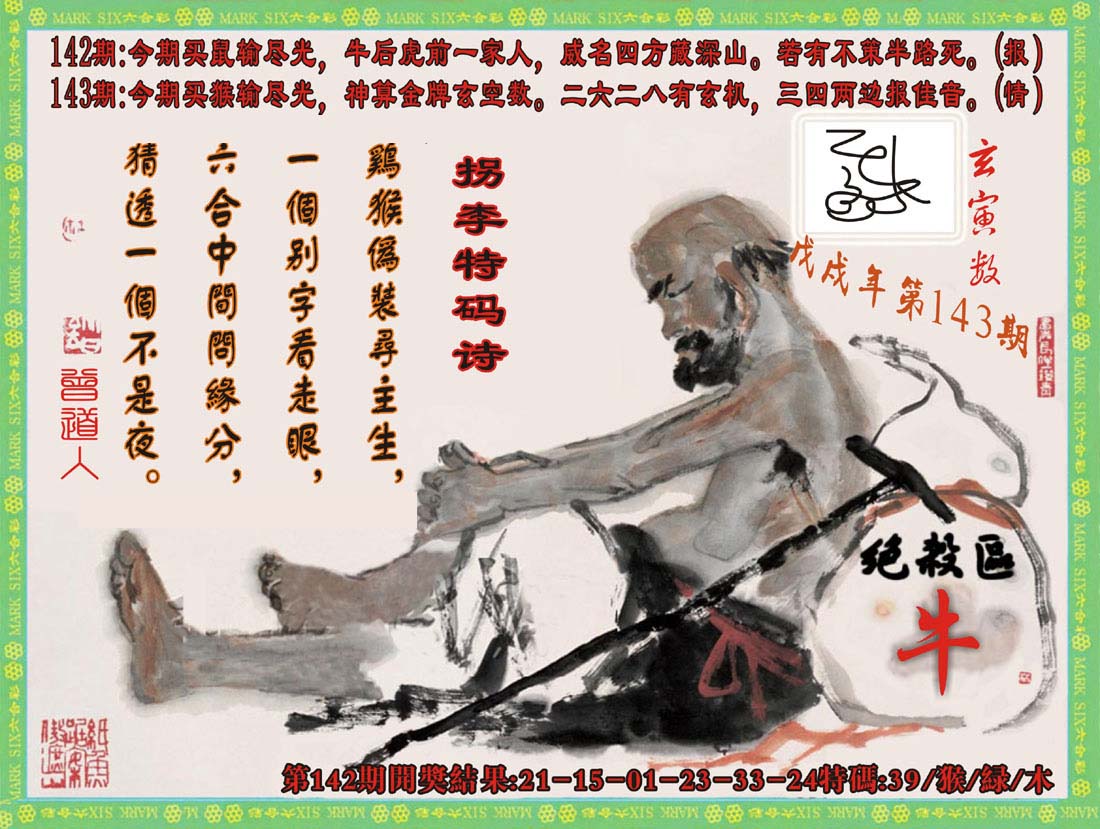 142期:今期买鼠输尽光，牛后虎前一家人，威名四方藏深山。若有不策半路死。(报)
143期:今期买猴输尽光，神算金牌玄空数。二六二八有玄机，三四两边报佳音。(情)
玄寅数
戊戌年第143期
拐李特码诗
鷄猴僞裝尋主生，
一個别字看走眼，
六合中間問緣分，
猜透一個不是夜。
曾道人
绝殺區
牛
第142期開獎結果:21-15-01-23-33-24特碼:39/猴/緑/木
MARK SIX六合彩